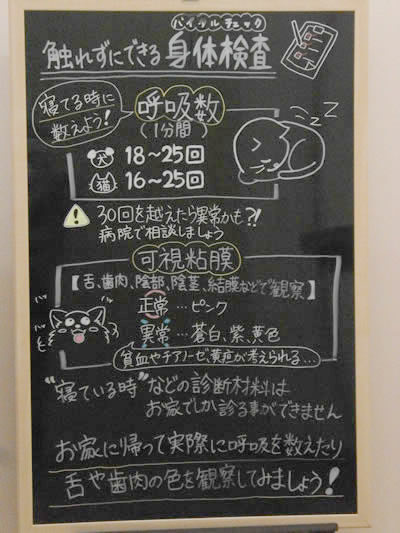 バイタルチェック
触れずにできる身体検査
寝てる時に
数えよう!
呼吸数
(1分間)
犬 18~25回
猫 16~25回
! 30回を越えたら異常かも?!
病院で相談しましょう
可視粘膜
【舌、歯肉、陰部、陰茎、結膜などで観察】
正常…ピンク
異常…蒼白、紫、黄色
貧血やチアノーゼ、黄疸が考えられる…
"寝ている時"などの診断材料は
お家でしか診る事ができません
お家に帰って実際に呼吸を数えたり
舌や歯肉の色を観察してみましょう!
ZZZ